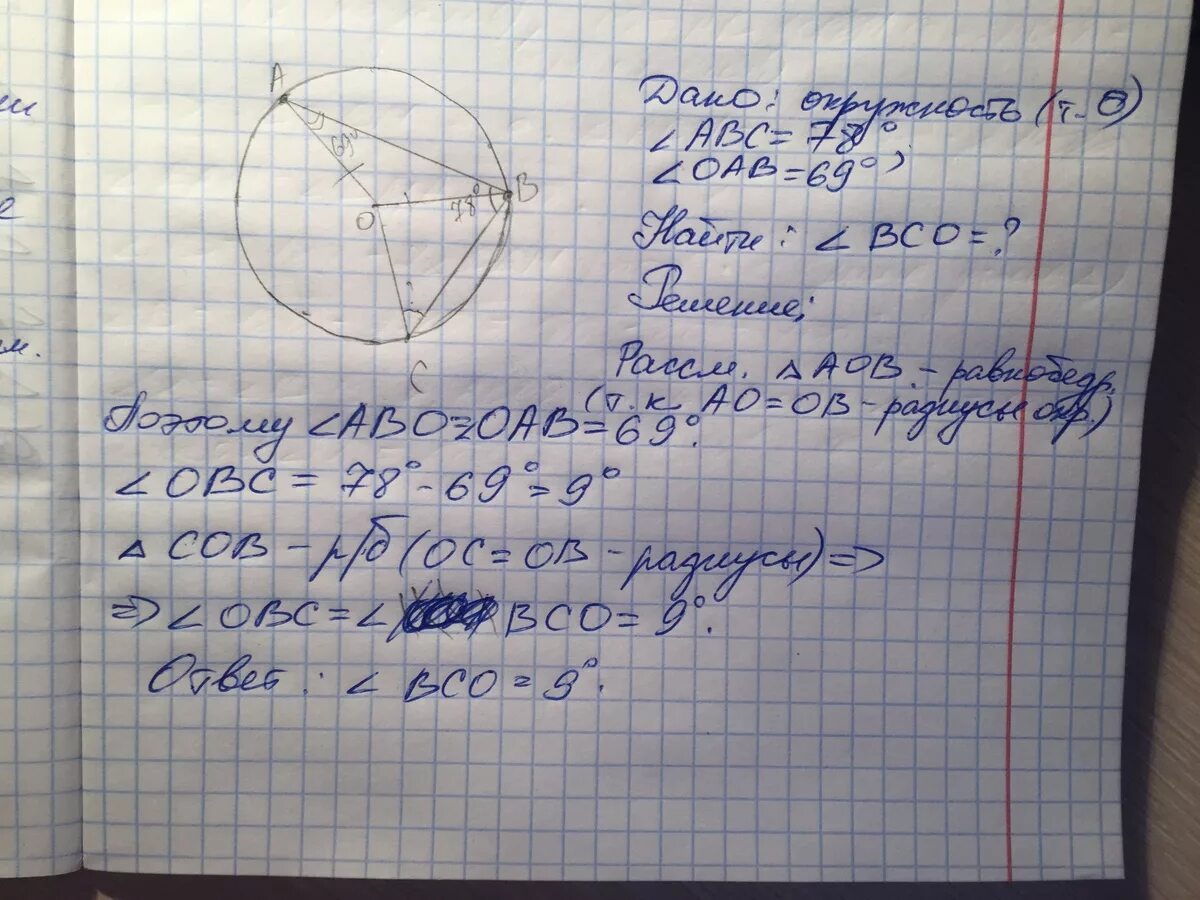 A
69°
O
78°
B
C
Дано: окружность (т. О)
∠ABC = 78°,
∠OAB = 69°
Найти: ∠BCO = ?
Решение:
Рассм. △ AOB - равнобедр.
(т.к AO = OB - радиусы окр.)
Поэтому ∠ABO = OAB = 69°.
∠OBC = 78° - 69° = 9°
△ COB - р/б (OC = OB - радиусы) =>
=> ∠OBC = ∠ BCO = 9°.
Ответ: ∠ BCO = 9°.
м.